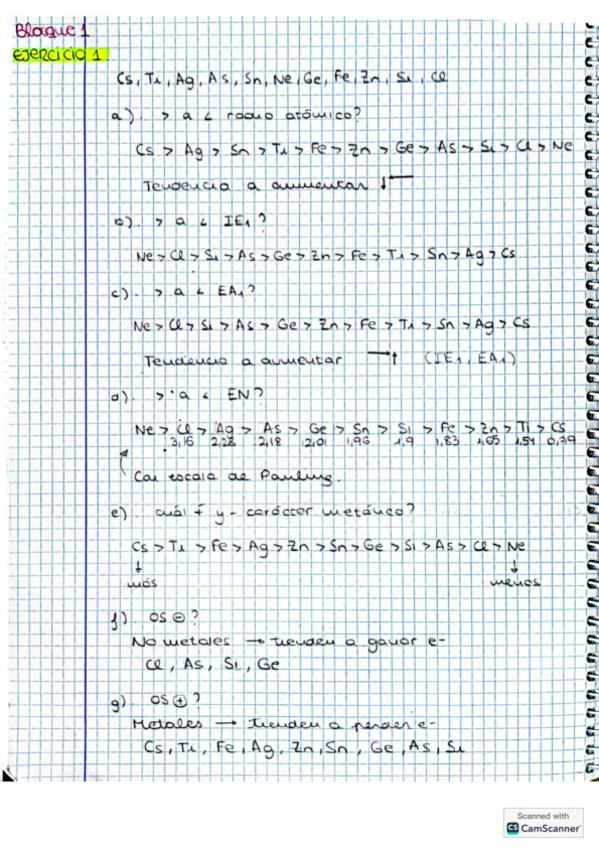 Bloque 1
Ejercicio 1.
Cs, Ti, Ag, As, Sn, Ne, Ge, Fe, Zn, Si, Cl
a). > a < radio atómico?
Cs > Ag > Sn > Ti > Fe > Zn > Ge > As > Si > Cl > Ne
Tendencia a aumentar ↓←
b). > a < IE₁?
Ne > Cl > Si > As > Ge > Zn > Fe > Ti > Sn > Ag > Cs
c). > a < EA₁?
Ne > Cl > Si > As > Ge > Zn > Fe > Ti > Sn > Ag > Cs
Tendencia a aumentar →↑ (IE₁, EA₁)
d). > a < EN?
Ne > Cl > Ag > As > Ge > Sn > Si > Fe > Zn > Ti > Cs
3,16 2,28 2,18 2,01 1,96 1,9 1,83 1,65 1,54 0,79
Con escala de Pauling.
e). cuál + y - carácter metálico?
Cs > Ti > Fe > Ag > Zn > Sn > Ge > Si > As > Cl > Ne
↓ ↓
más menos
f). OS ⊖?
No metales → tienden a ganar e-
Cl, As, Si, Ge
g). OS ⊕?
Metales → tienden a perder e-
Cs, Ti, Fe, Ag, Zn, Sn, Ge, As, Si
Scanned with
CS CamScanner